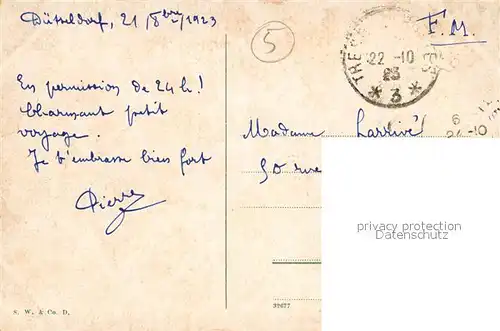 Düsseldorf, 21 / 8bre / 1923
F.M.
5
22 -10
23
* 3 *
6
24 -10
En permission de 24 h !
Charmant petit
voyage.
Je t'embrasse bien fort
Pierre
Madame Larrivé
50 rue
privacy protection
Datenschutz
S. W. & Co. D.
32677